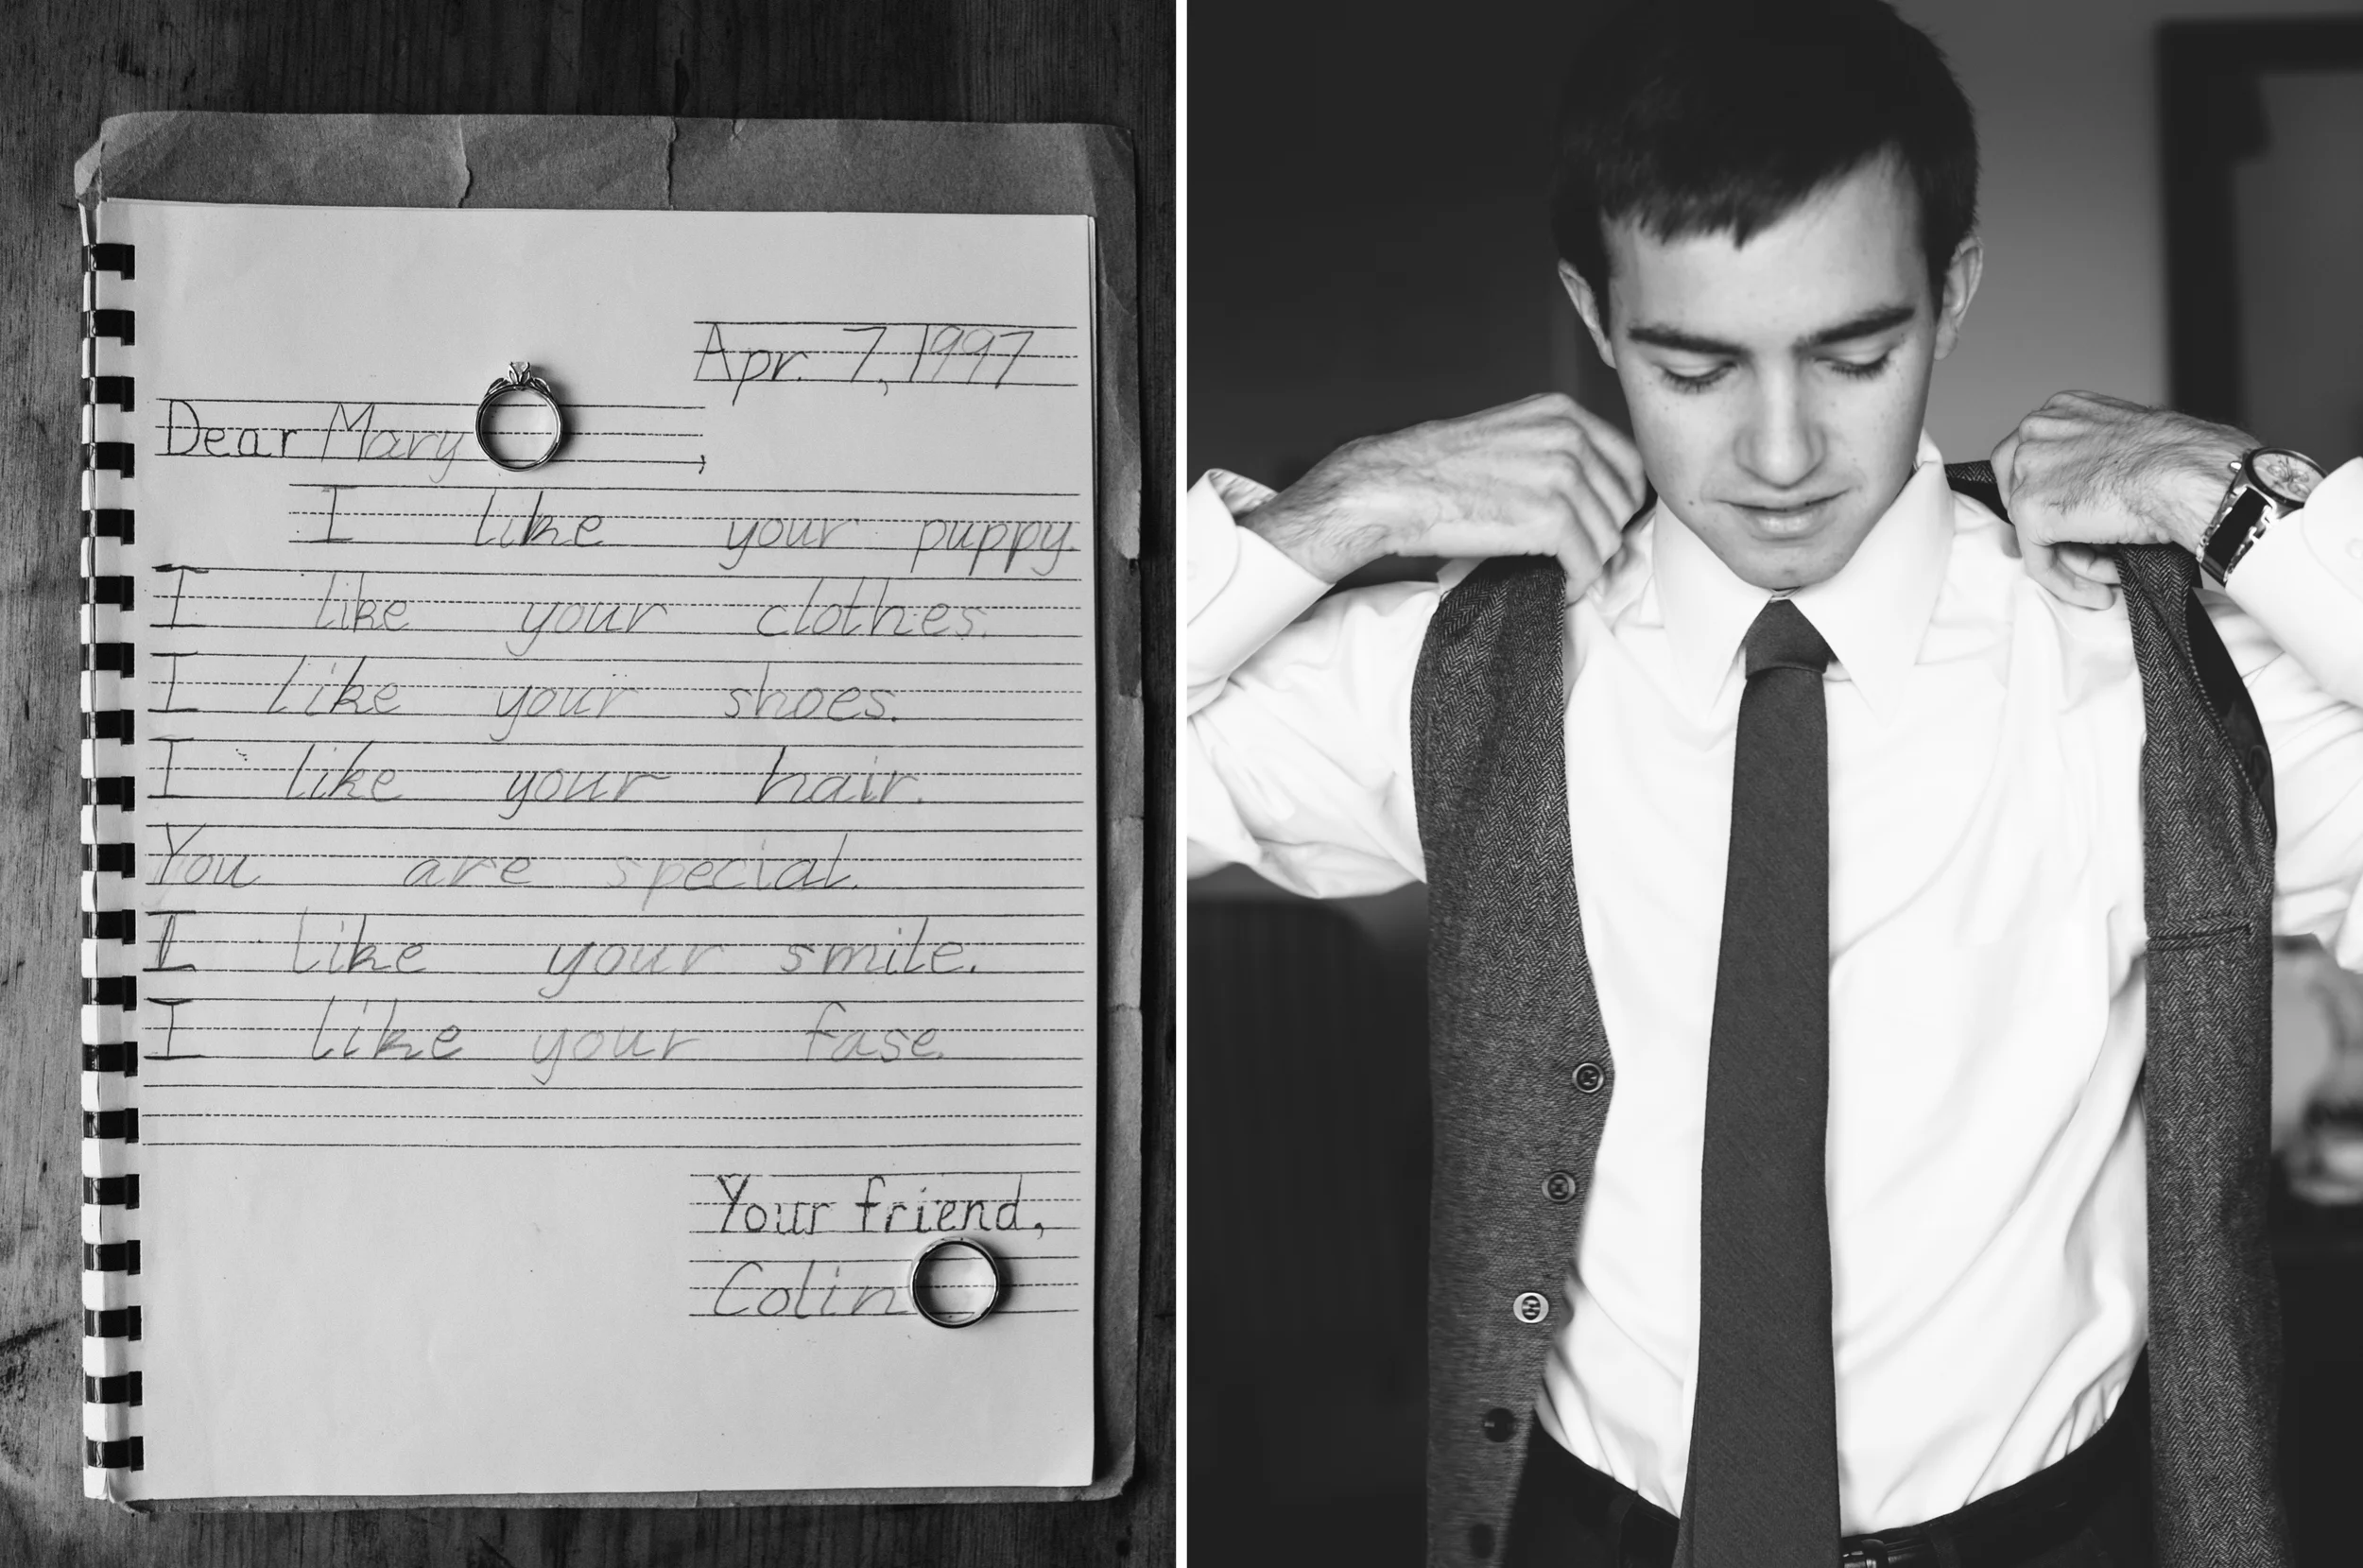 Apr. 7, 1997
Dear Mary ,
I like your puppy.
I like your clothes.
I like your shoes.
I like your hair.
You are special.
I like your smile.
I like your fase.
Your friend,
Colin